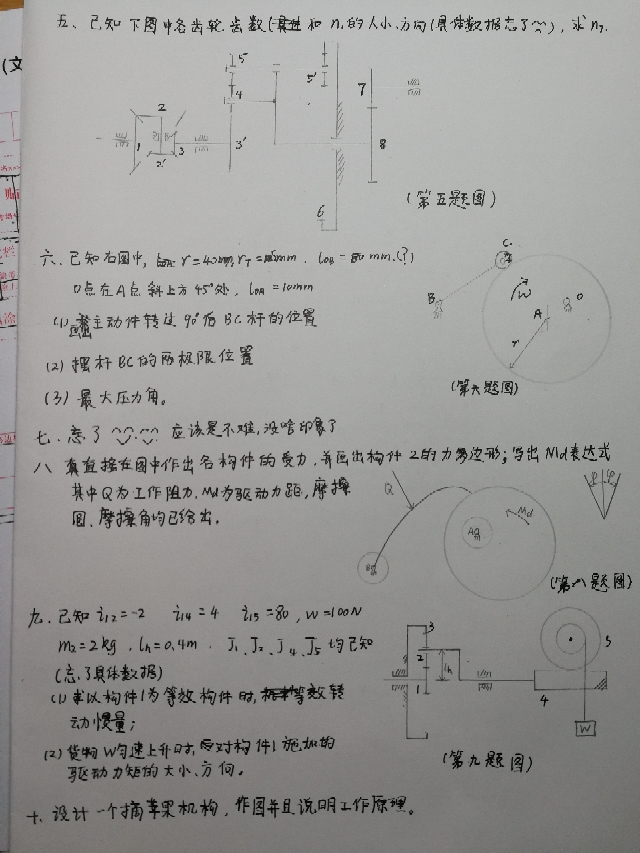 (文
五、已知下图中各齿轮齿数(和 n₁的大小、方向(具体数据忘了), 求n₇.
5
5'
2
4
7
1
2'
3
3'
8
(第五题图)
6
六、已知右图中, r=40mm, mm, mm.(?)
O点在A点斜上方45°处, lOA=10mm
(1) 主动件转过90°后BC杆的位置
(2) 摆杆BC的两极限位置
(3) 最大压力角。
C
B
W
A
O
r
(第六题图)
七、忘了 应该是不难,没啥印象了
八、直接在图中作出各构件的受力,并画出构件2的力多边形;写出Md表达式
其中Q为工作阻力,Md为驱动力距,摩擦
圆、摩擦角均已给出。
Q
Md
A
B
φ φ
(第八题图)
九、已知 i₁₂=-2 i₁₄=4 i₁₅=80, W=100N
m₂=2kg, lh=0.4m. J₁、J₂、J₄、J₅均已知
(忘了具体数据)
(1) 求以构件1为等效构件时,等效转
动惯量;
(2) 货物W匀速上升时,应对构件1施加的
驱动力矩的大小、方向。
3
2
lh
1
5
4
W
(第九题图)
十、设计一个摘苹果机构,作图并且说明工作原理。